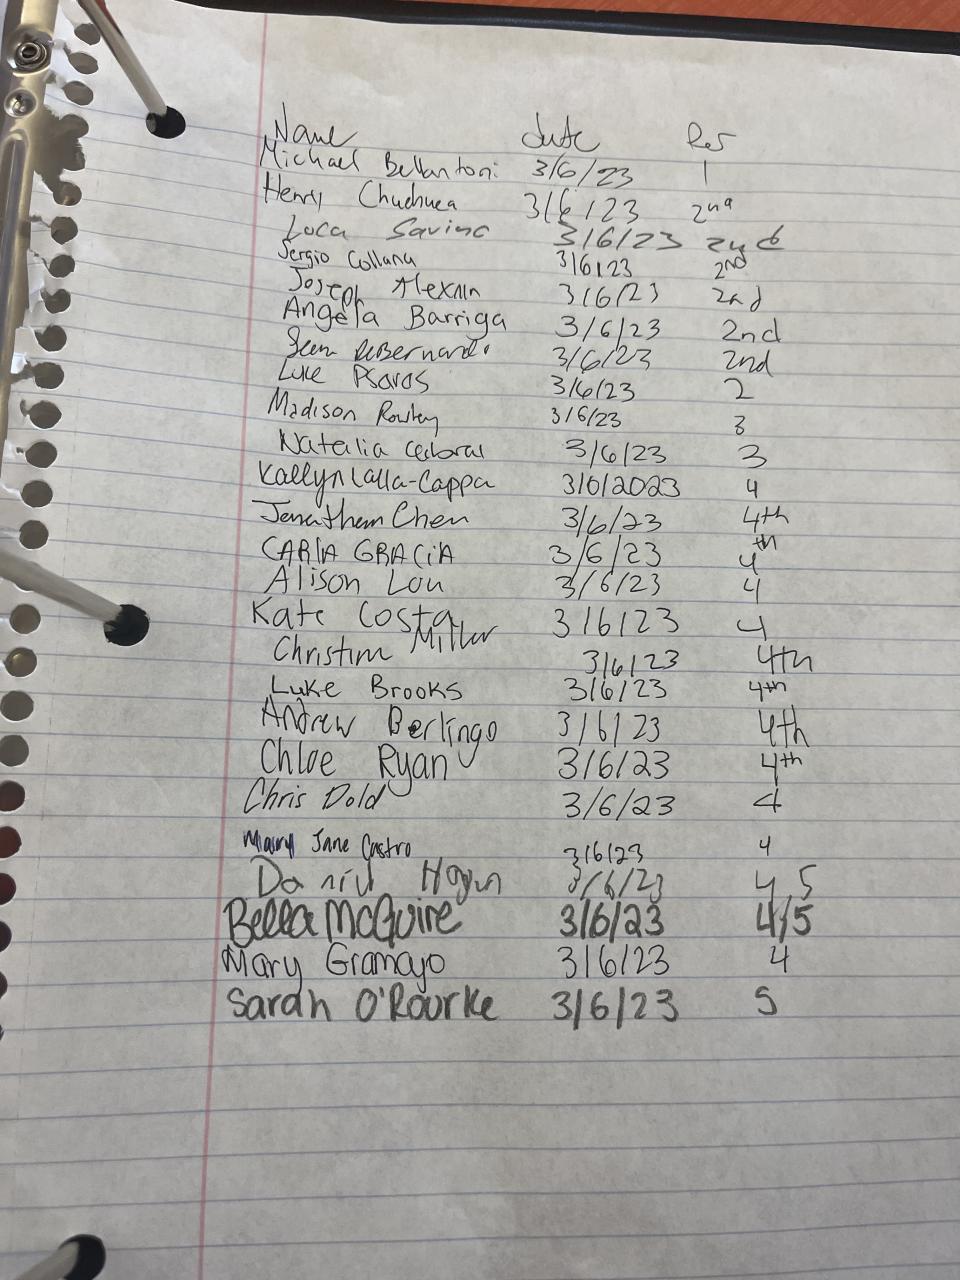 Name date Per
Michael Bellantoni 3/6/23 1
Henry Chuchuca 3/6/23 2nd
Luca Savino 3/6/23 2nd
Sergio Collana 3/6/23 2nd
Joseph 3/6/23 2nd
Angela Barriga 3/6/23 2nd
Sean DeBernardo 3/6/23 2nd
Luke Psaros 3/6/23 2
Madison 3/6/23 3
Natalia 3/6/23 3
Kaelyn Lalla-Cappa 3/6/2023 4
Jonathan Chen 3/6/23 4th
CARLA GRACIA 3/6/23 4th
Alison Lou 3/6/23 4
Kate Costa 3/6/23 4
Christina Miller 3/6/23 4th
Luke Brooks 3/6/23 4th
Andrew Berlingo 3/6/23 4th
Chloe Ryan 3/6/23 4th
Chris Dold 3/6/23 4
Mary Jane Castro 3/6/23 4
Daniel 3/6/23 4 5
Bella McGuire 3/6/23 4/5
Mary Gramajo 3/6/23 4
Sarah O'Rourke 3/6/23 5